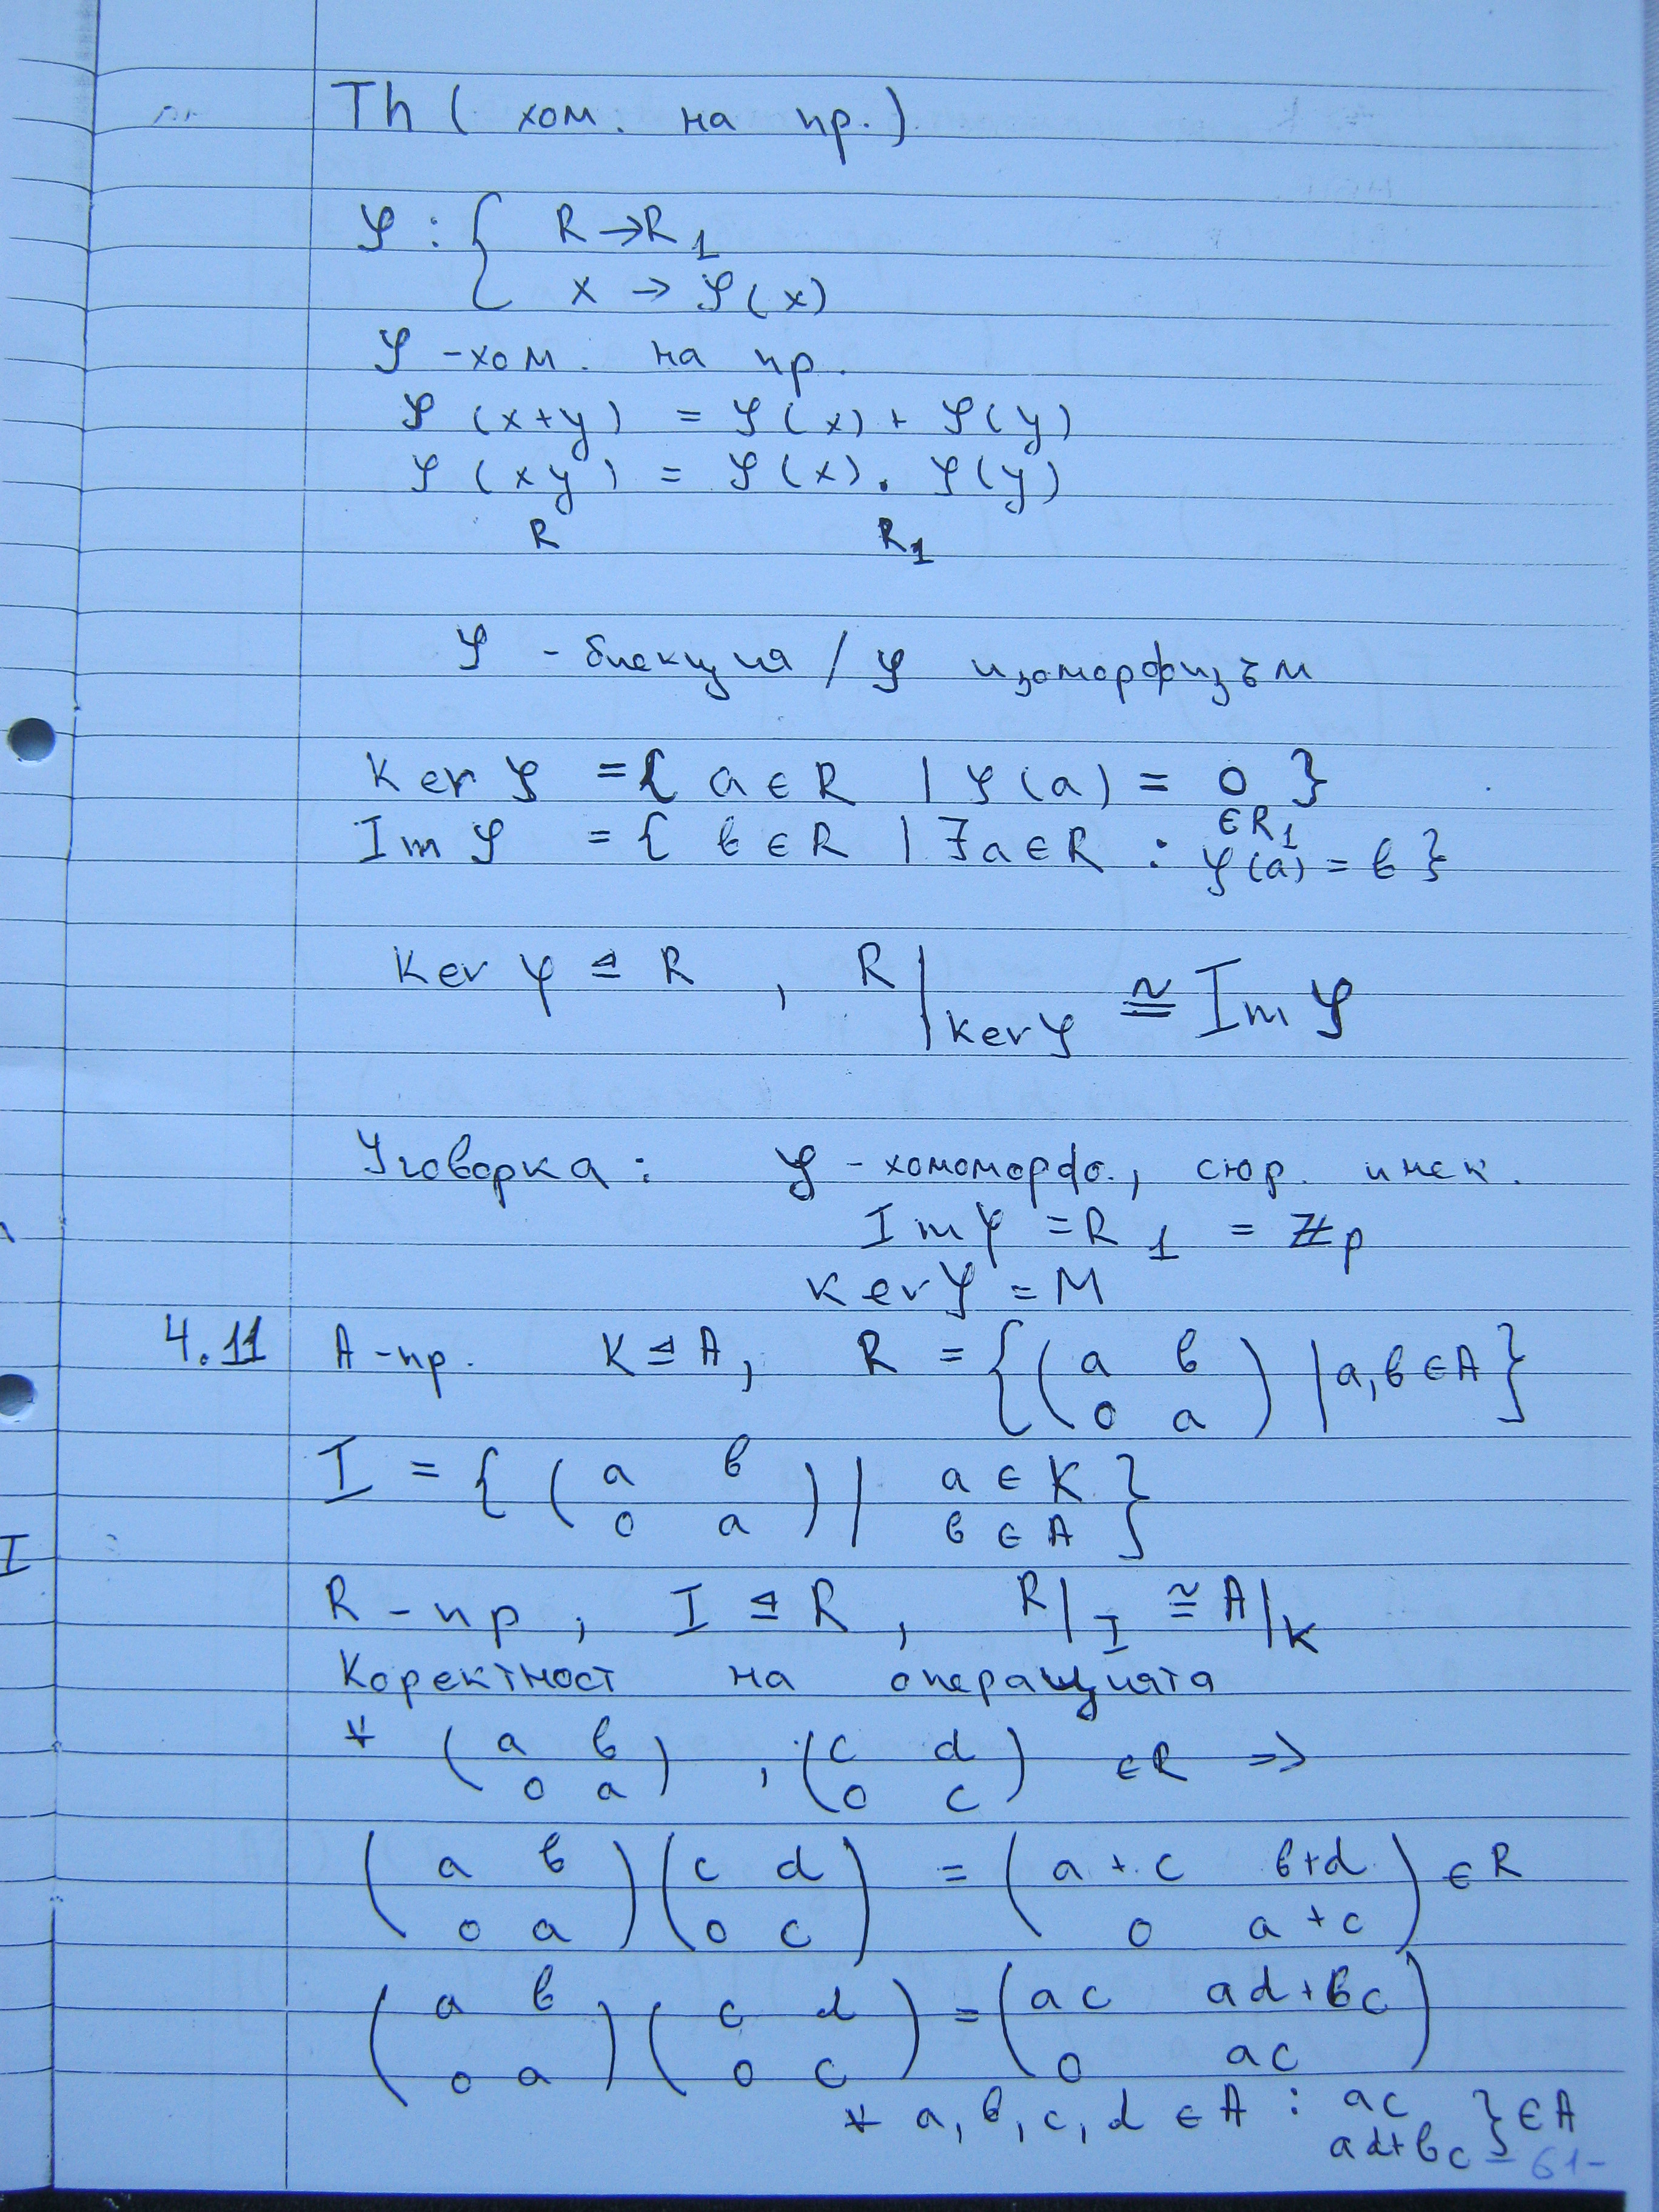 Th ( хом. на пр.)
φ : { R → R₁
x → φ(x)
φ - хом. на пр.
φ (x+y) = φ(x) + φ(y)
φ (xy) = φ(x) . φ(y)
R R₁
φ - биекция / φ изоморфизъм
Ker φ = { a ∈ R | φ(a) = 0 }
∈R₁
Im φ = { b ∈ R | ∃a ∈ R : φ(a) = b }
Ker φ ⊴ R , R|Ker φ ≅ Im φ
Уговорка: φ - хомоморф., сюр. инек.
Im φ = R₁ = ℤp
Ker φ = M
4.11 A - пр. K ⊴ A, R = { ( a b
0 a ) | a, b ∈ A }
I = { ( a b
0 a ) | a ∈ K
b ∈ A }
R - пр, I ⊴ R, R|I ≅ A|K
Коректност на операцията
* ( a b
0 a ) , ( c d
0 c ) ∈ R ⇒
( a b
0 a ) ( c d
0 c ) = ( a + c b+d
0 a + c ) ∈ R
( a b
0 a ) ( c d
0 c ) = ( ac ad+bc
0 ac )
* a, b, c, d ∈ A : ac
ad+bc } ∈ A
- 61 -